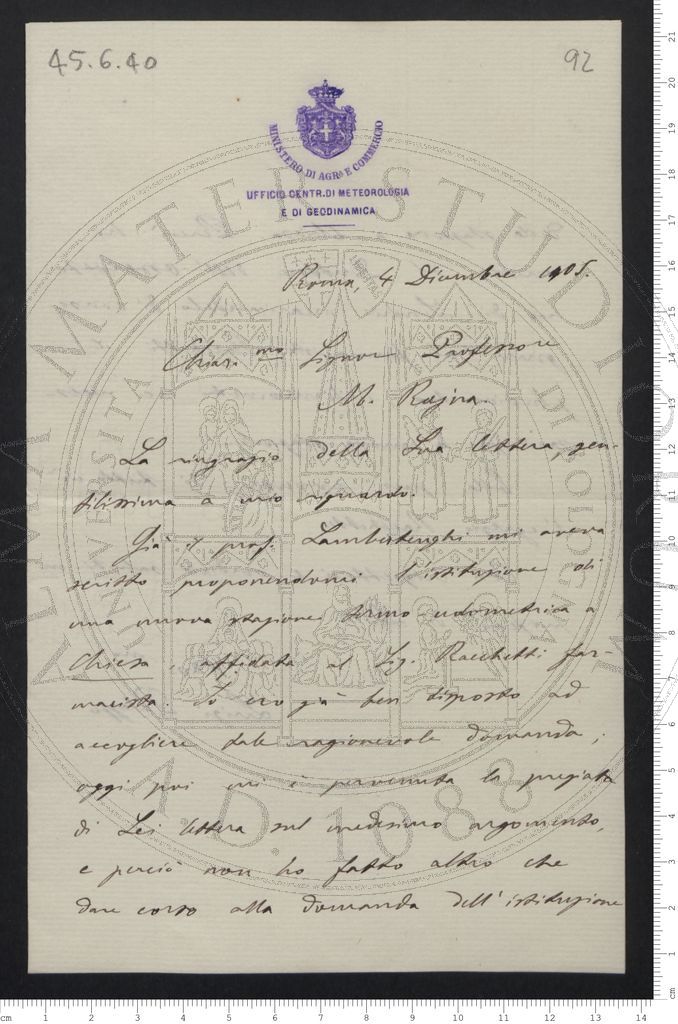 45.6.40
92
MINISTERO DI AGR.ª E COMMERCIO
UFFICIO CENTR. DI METEOROLOGIA
E DI GEODINAMICA
Roma, 4 Dicembre 1905.
Chiar.mo Signor Professore
M. Rajna.
La ringrazio della Sua lettera, gen-
tilissima a mio riguardo.
Già il prof. Lambertenghi mi aveva
scritto proponendomi l'istituzione di
una nuova stazione termo-udometrica a
Chiesa, affidata al Sig. Racchetti far-
macista. Io ero già ben disposto ad
accogliere tale ragionevole domanda;
oggi poi mi è pervenuta la pregiata
di Lei lettera sul medesimo argomento,
e perciò non ho fatto altro che
dare corso alla domanda dell'istituzione
ALMA MATER STUDIORUM
UNIVERSITA DI BOLOGNA
LIBERTAS
A.D. 1088